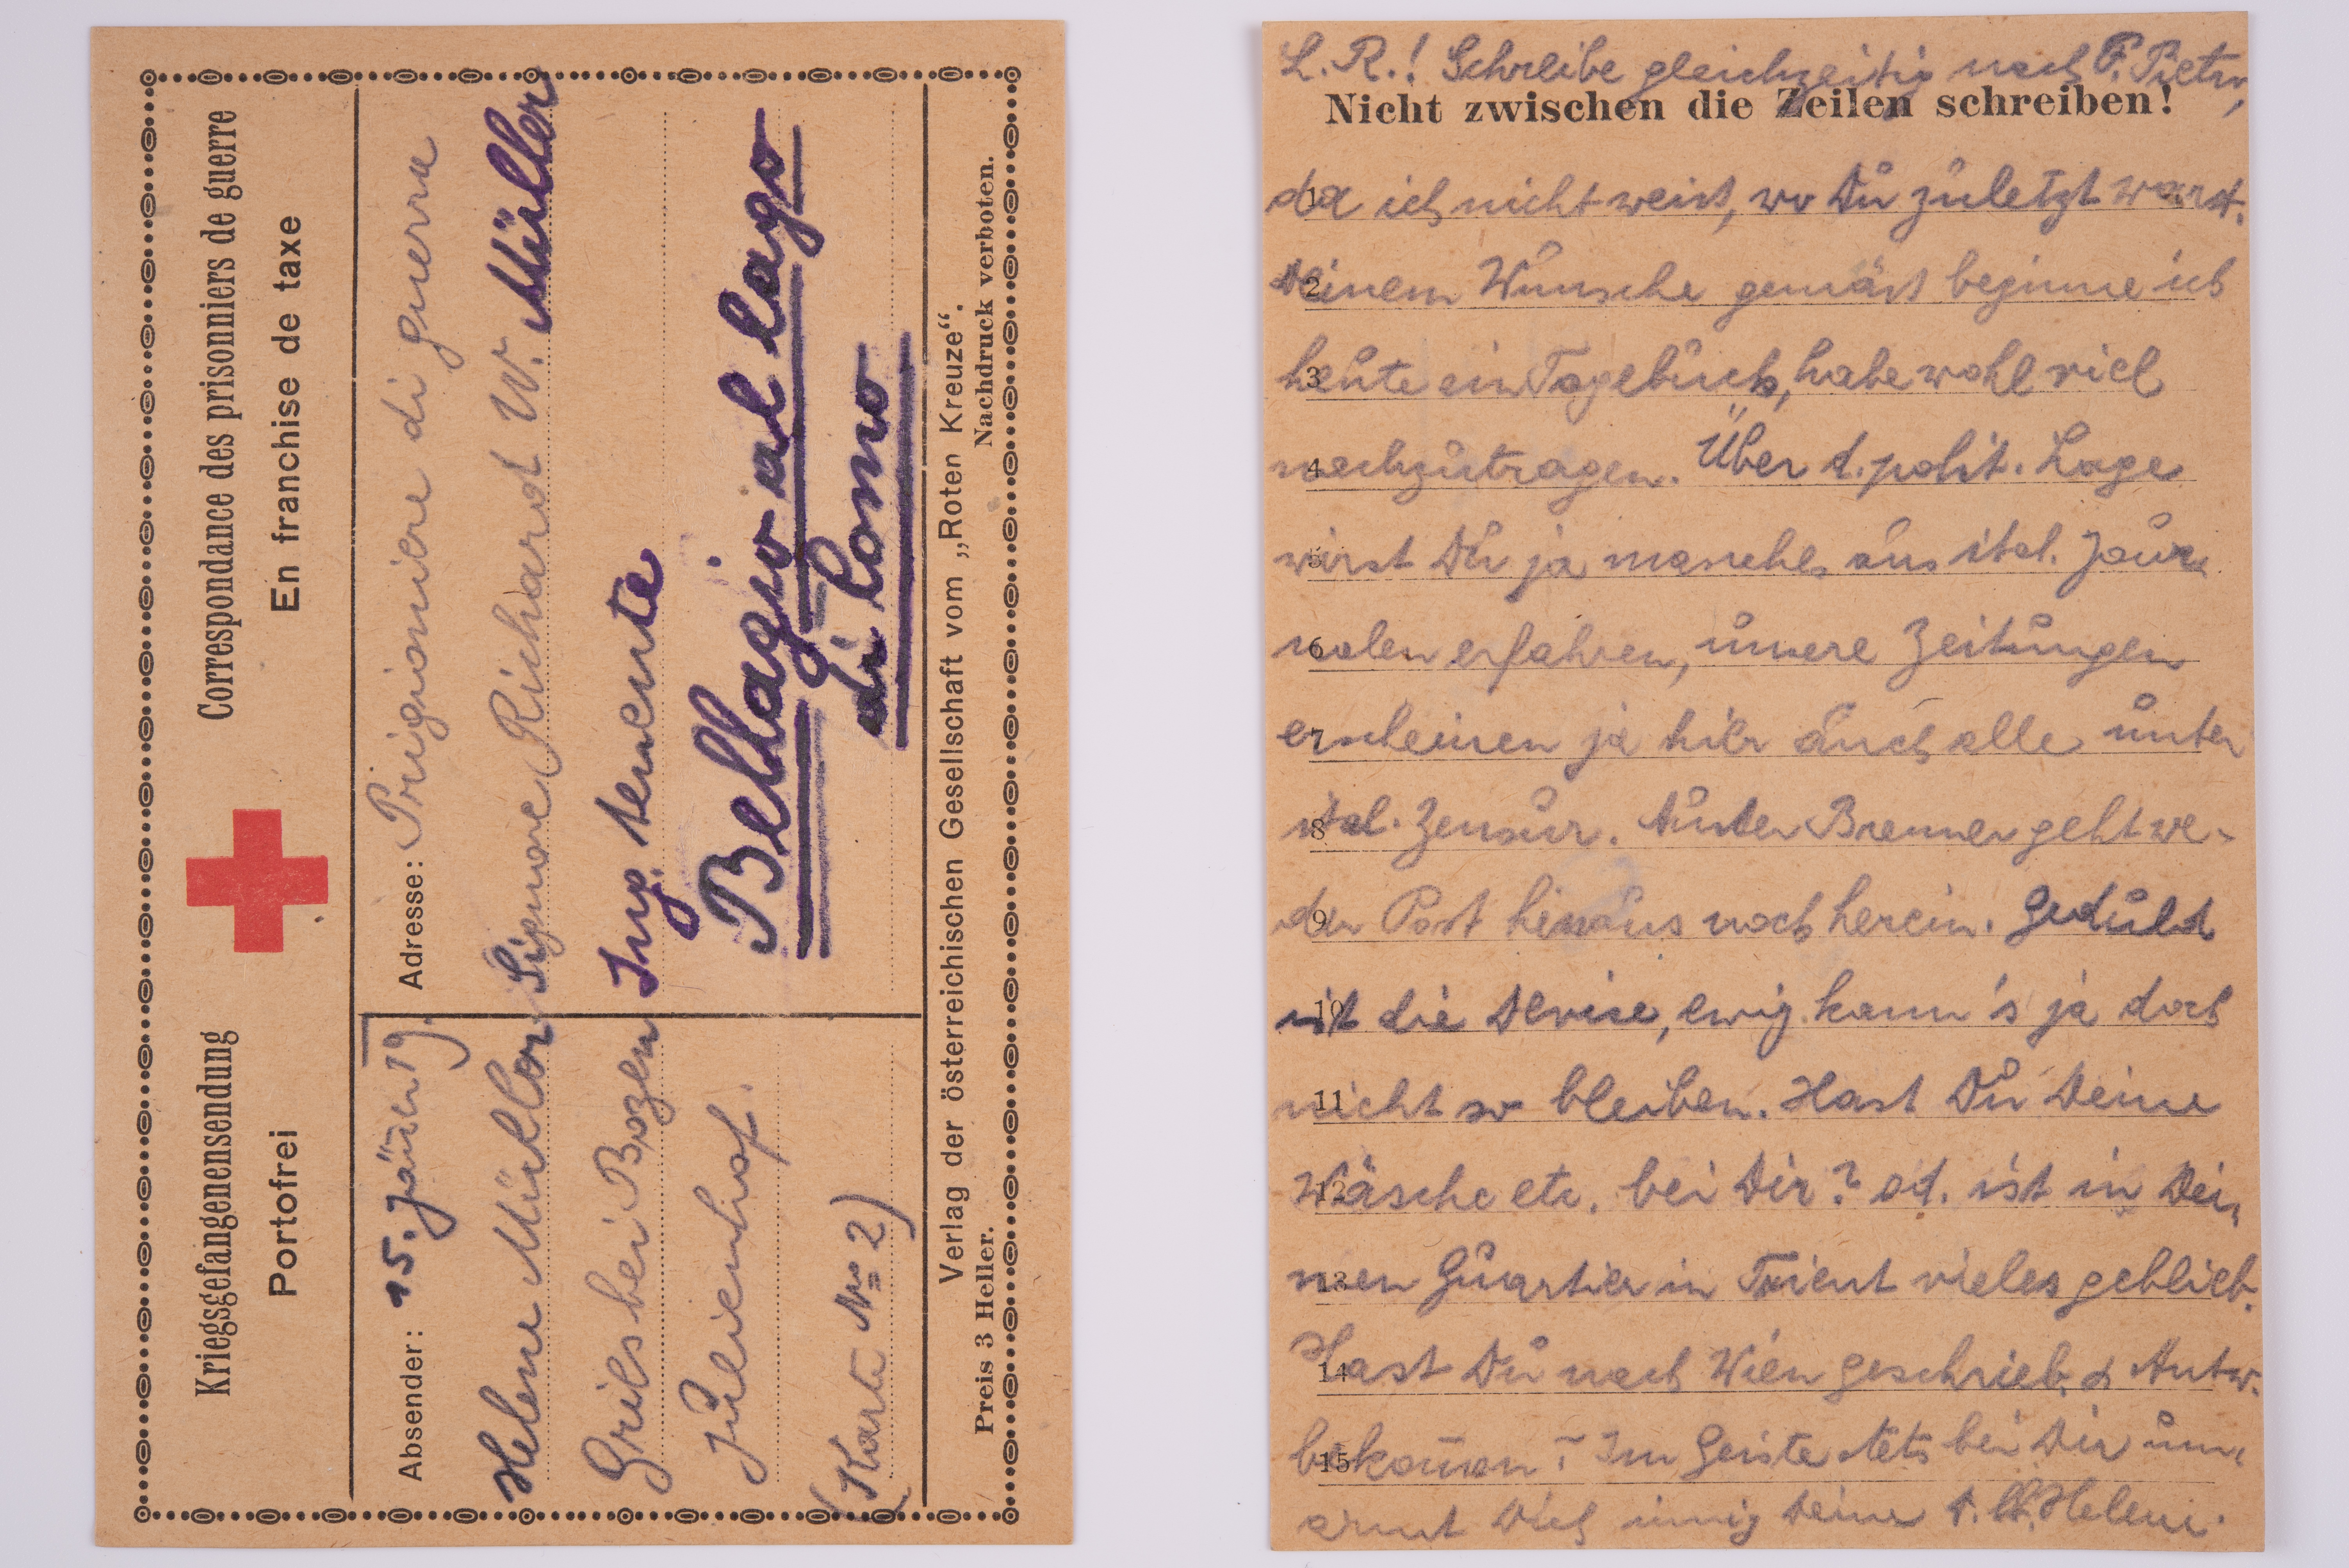 Kriegsgefangenensendung
Portofrei
Correspondance des prisonniers de guerre
En franchise de taxe
Absender: 15. Jänn. 19.
Helene Müller
Gries bei Bozen
Julienhof.
(Karte No 2)
Adresse: Prigioniere di guerra
Signore Richard W. Müller
Ing. tenente
Bellagio al lago
di Como
Verlag der österreichischen Gesellschaft vom „Roten Kreuze“.
Preis 3 Heller.
Nachdruck verboten.
L. R.! Schreibe gleichzeitig nach P. Pietro,
Nicht zwischen die Zeilen schreiben!
1 da ich nicht weiss, wo Du zuletzt warst.
2 Deinem Wunsche gemäss beginne ich
3 heute ein Tagebuch, habe wohl viel
4 nachzutragen. Über d. polit. Lage
5 wirst Du ja manches aus ital. Jour-
6 nalen erfahren, unsere Zeitungen
7 erscheinen ja hier auch alle unter
8 ital. Zensur. Über Brenner geht we-
9 der Post hinaus noch herein. Geduld
10 ist die Devise, ewig kann's ja doch
11 nicht so bleiben. Hast Du Deine
12 Wäsche etc. bei Dir? od. ist in Dei-
13 nen Quartier in Trient vieles geblieb.
14 Hast Du nach Wien geschrieb. & Antw.
15 bekom̄en? – Im Geiste stets bei Dir um-
armt Dich innig Deine Helene.